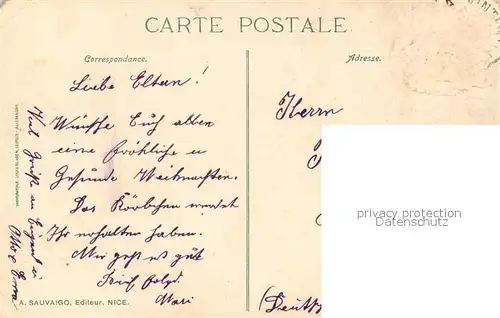 CARTE POSTALE
Correspondance.
Adresse.
Liebe Eltern!
Wünsche Euch allen
eine fröhliche u
Gesunde Weihnachten.
Das Körbchen werdet
Ihr erhalten haben.
Mir geht es gut
Brief folgt.
Mari
Viel Grüße an
Otto u Emma
Herrn
(Deutsch
privacy protection
www.oldthing.de
A. SAUVAIGO, Editeur, NICE.